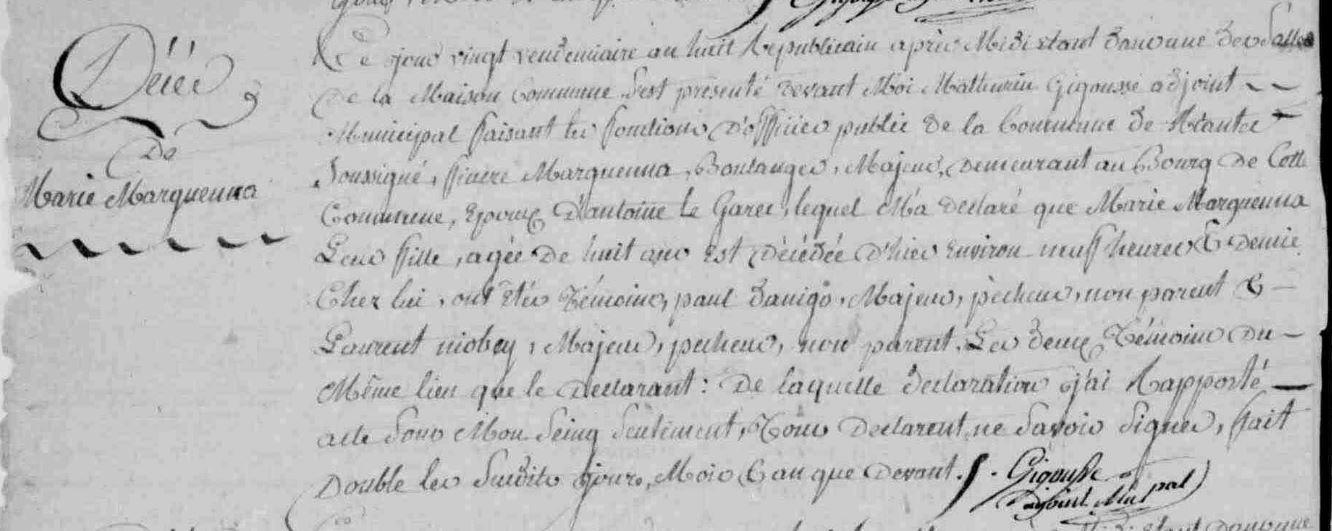 Décés
de
Marie Marquenna
Ce jour vingt vendemiaire an huit Republicain après Midi étant dans une des Salles
de la Maison Commune s'est présenté devant Moi Mathurin Gigousse adjoint
Municipal faisant les fonctions d'officier public de la Commune de
Soussigné, Marquenna, Boulanger, Majeur, demeurant au Bourg de Cette
Commune, Epoux d'antoine le Garec, lequel M'a declaré que Marie Marquenna
Leur fille, agée de huit ans Est décédée d'hier Environ neuf heures & demie
Chez lui, ont étés Témoins, paul Danigo, Majeur, pècheur, non parent &
Laurent niobey, Majeur, pecheur, non parent. Les deux Témoins du
Même lieu que le declarant: de laquelle declaration j'ai Rapporté
acte sous Mon Seing Seulement, Tous declarent ne Savoir Signer, fait
double les Susdits jour, Mois & an que devant. Gigousse
adjoint Mupal